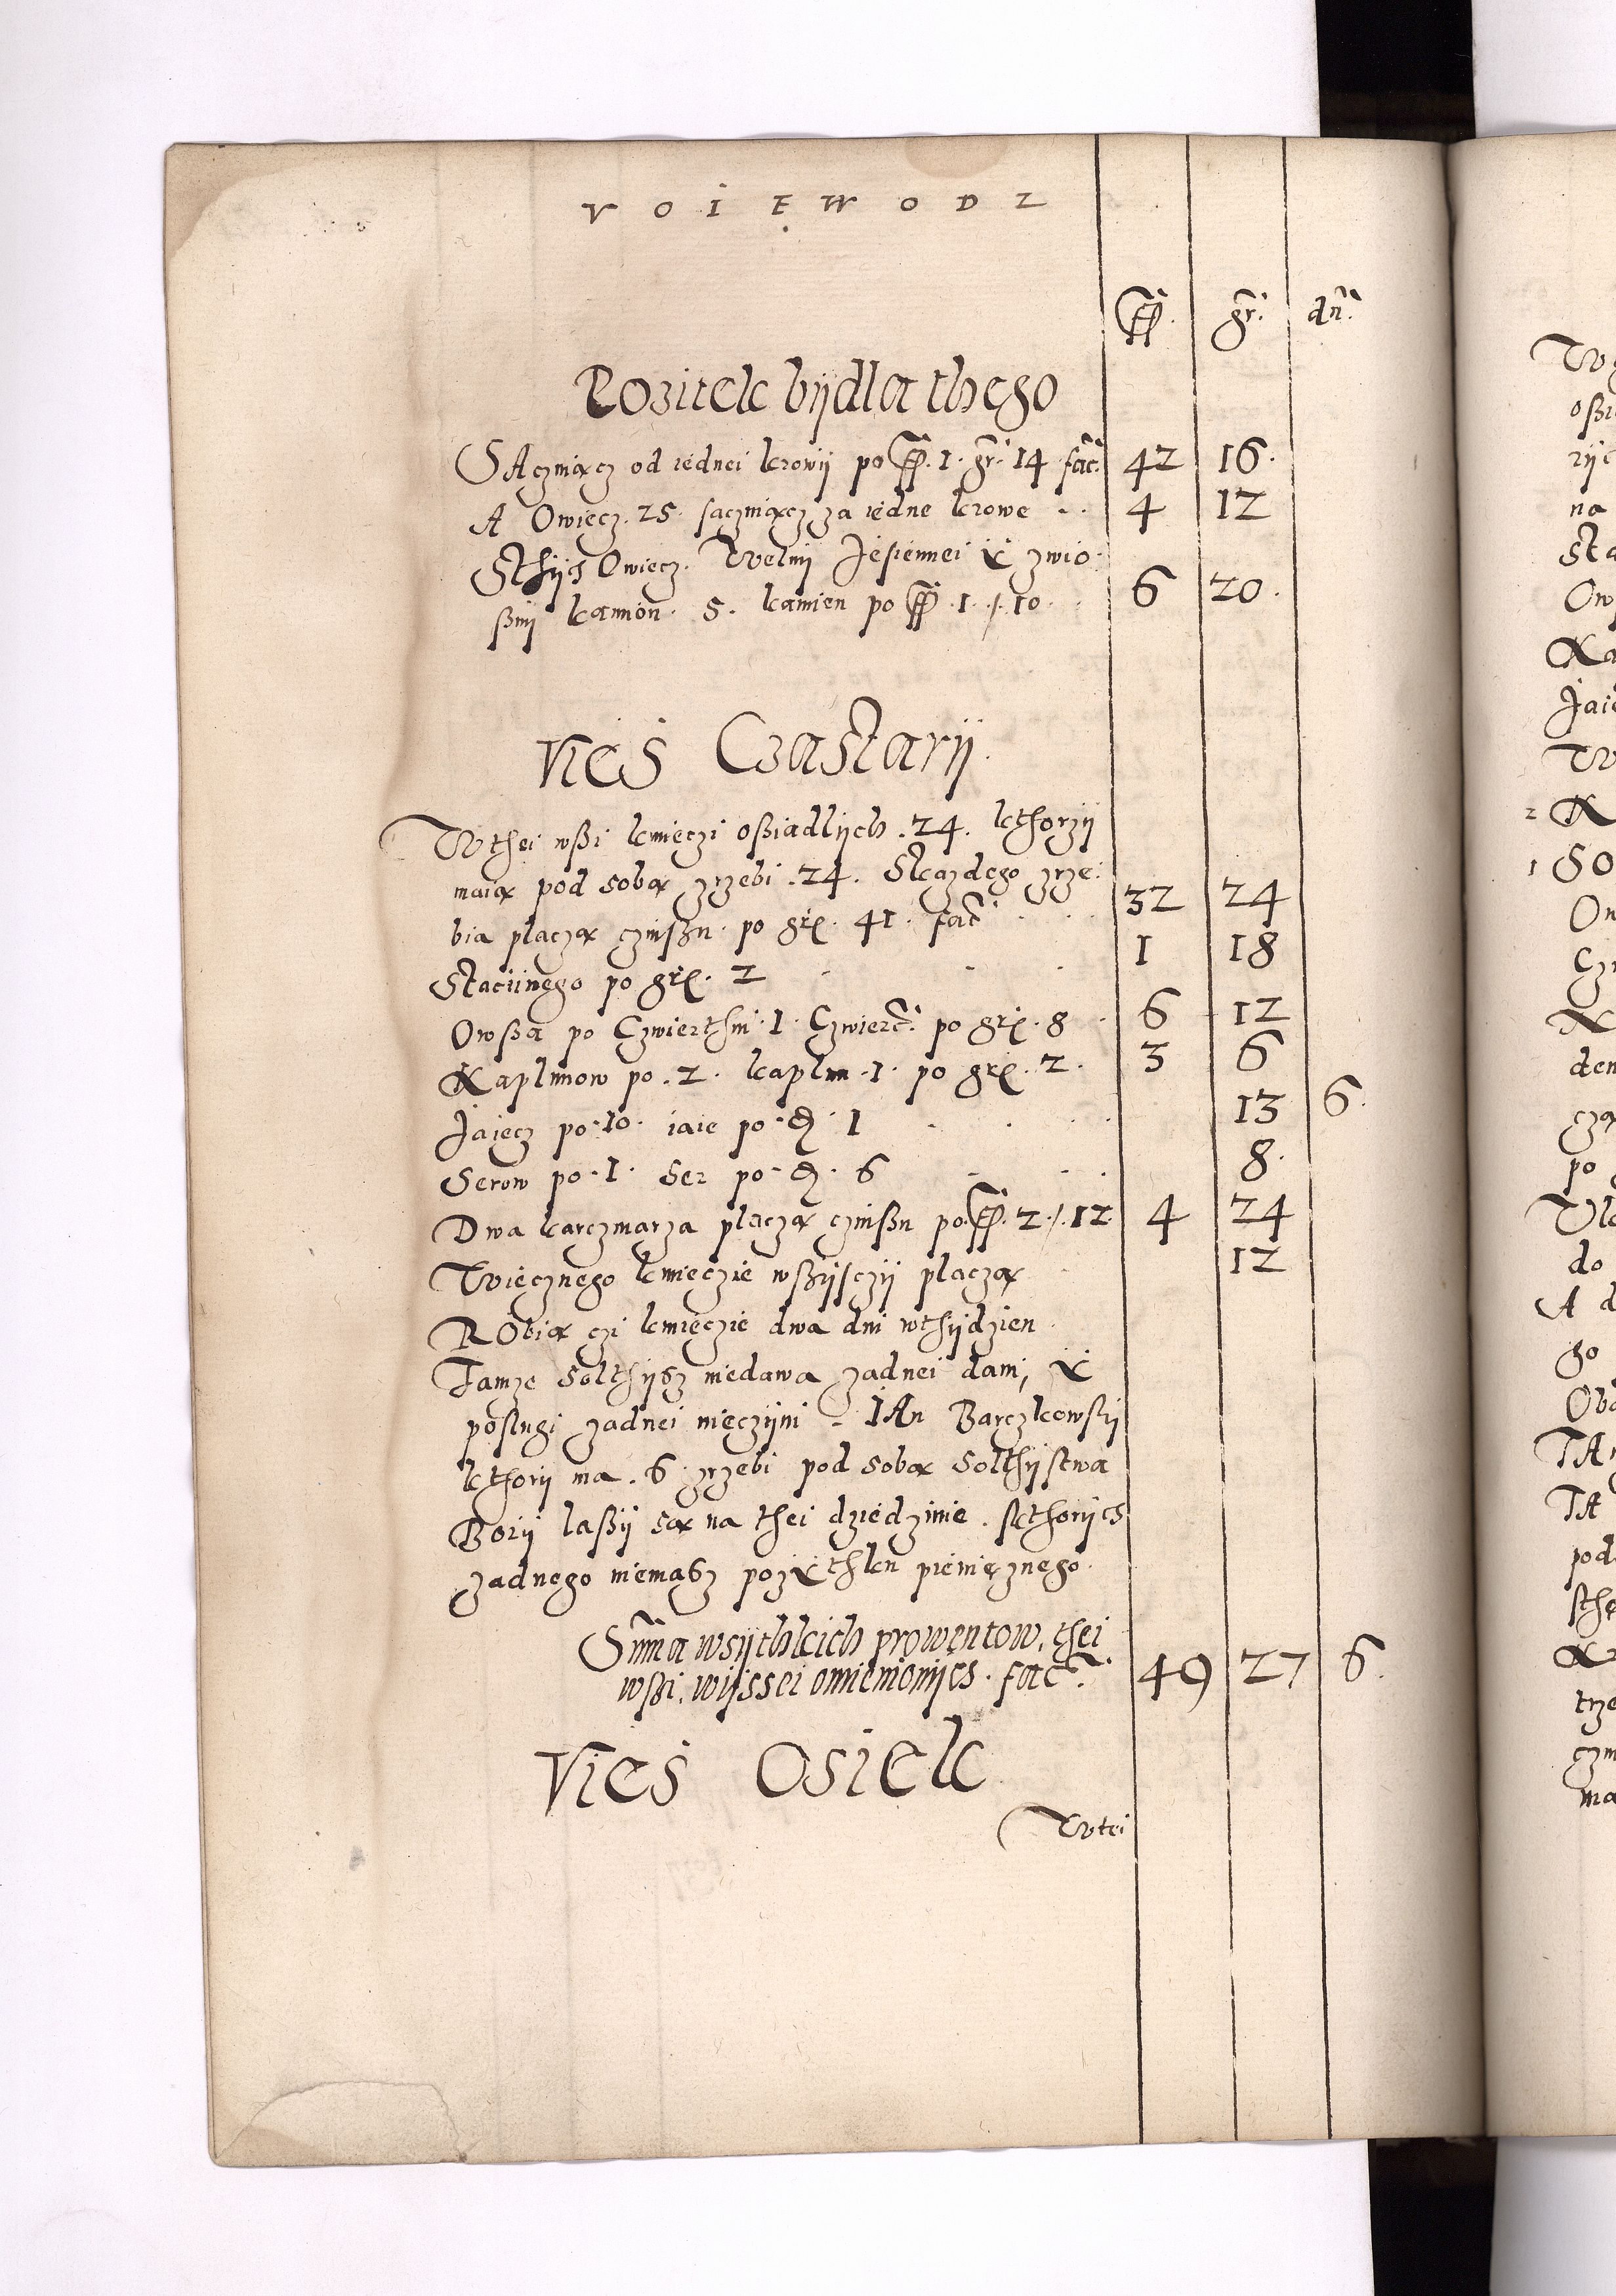 VOIEWODZ
ff. gr. dn.
Pozitek bydla thego
SAczniącz od iednei krowy po ff. 1. gr. 14 fac. 42 16.
A Owiecz. 25. saczniącz za iedne krowe 4 12
Sthych Owiecz. Welny Jesiennei y zwio
ßny kamion. 5. kamien po ff. 1. /. 10. 6 20.
Vies Czastary
W thei wßi kmieczi oßiadlych. 24. kthorzy
maią pod sobą zrzebi. 24. Skazdego zrze
bia placzą czinßu. po gr. 41. fac 32 24
Staciinego po gr. 2 1 18
Owßa po Czwierthni. 1. Czwierc. po gr. 8 6 12
Kaplunow po. 2. kaplun. 1. po gr. 2. 3 6
Jaiecz po. 10. iaie po. d. 1 13 6.
Serow po. 1. Ser po. d. 6 8.
Dwa karczmarza placzą czinßu po. ff. 2. /. 12. 4 24
Wiecznego kmieczie wßysczy placzą 12
RObią czi kmieczie dwa dni wthydzien
Tamze Solthysz niedawa zadnei dani, y
poslugi zadnei nieczyni - IAn Barczkowsky
kthory ma. 6. zrzebi pod sobą Solthystwa
Bory laßy są na thei dziedzinie. skthorych
zadnego niemaßz pozythku pieniężnego.
Summa wsythkich prowentow, thei
wßi, wyssei omienionych. fac. 49 27 6.
Vies Osiek
W tei